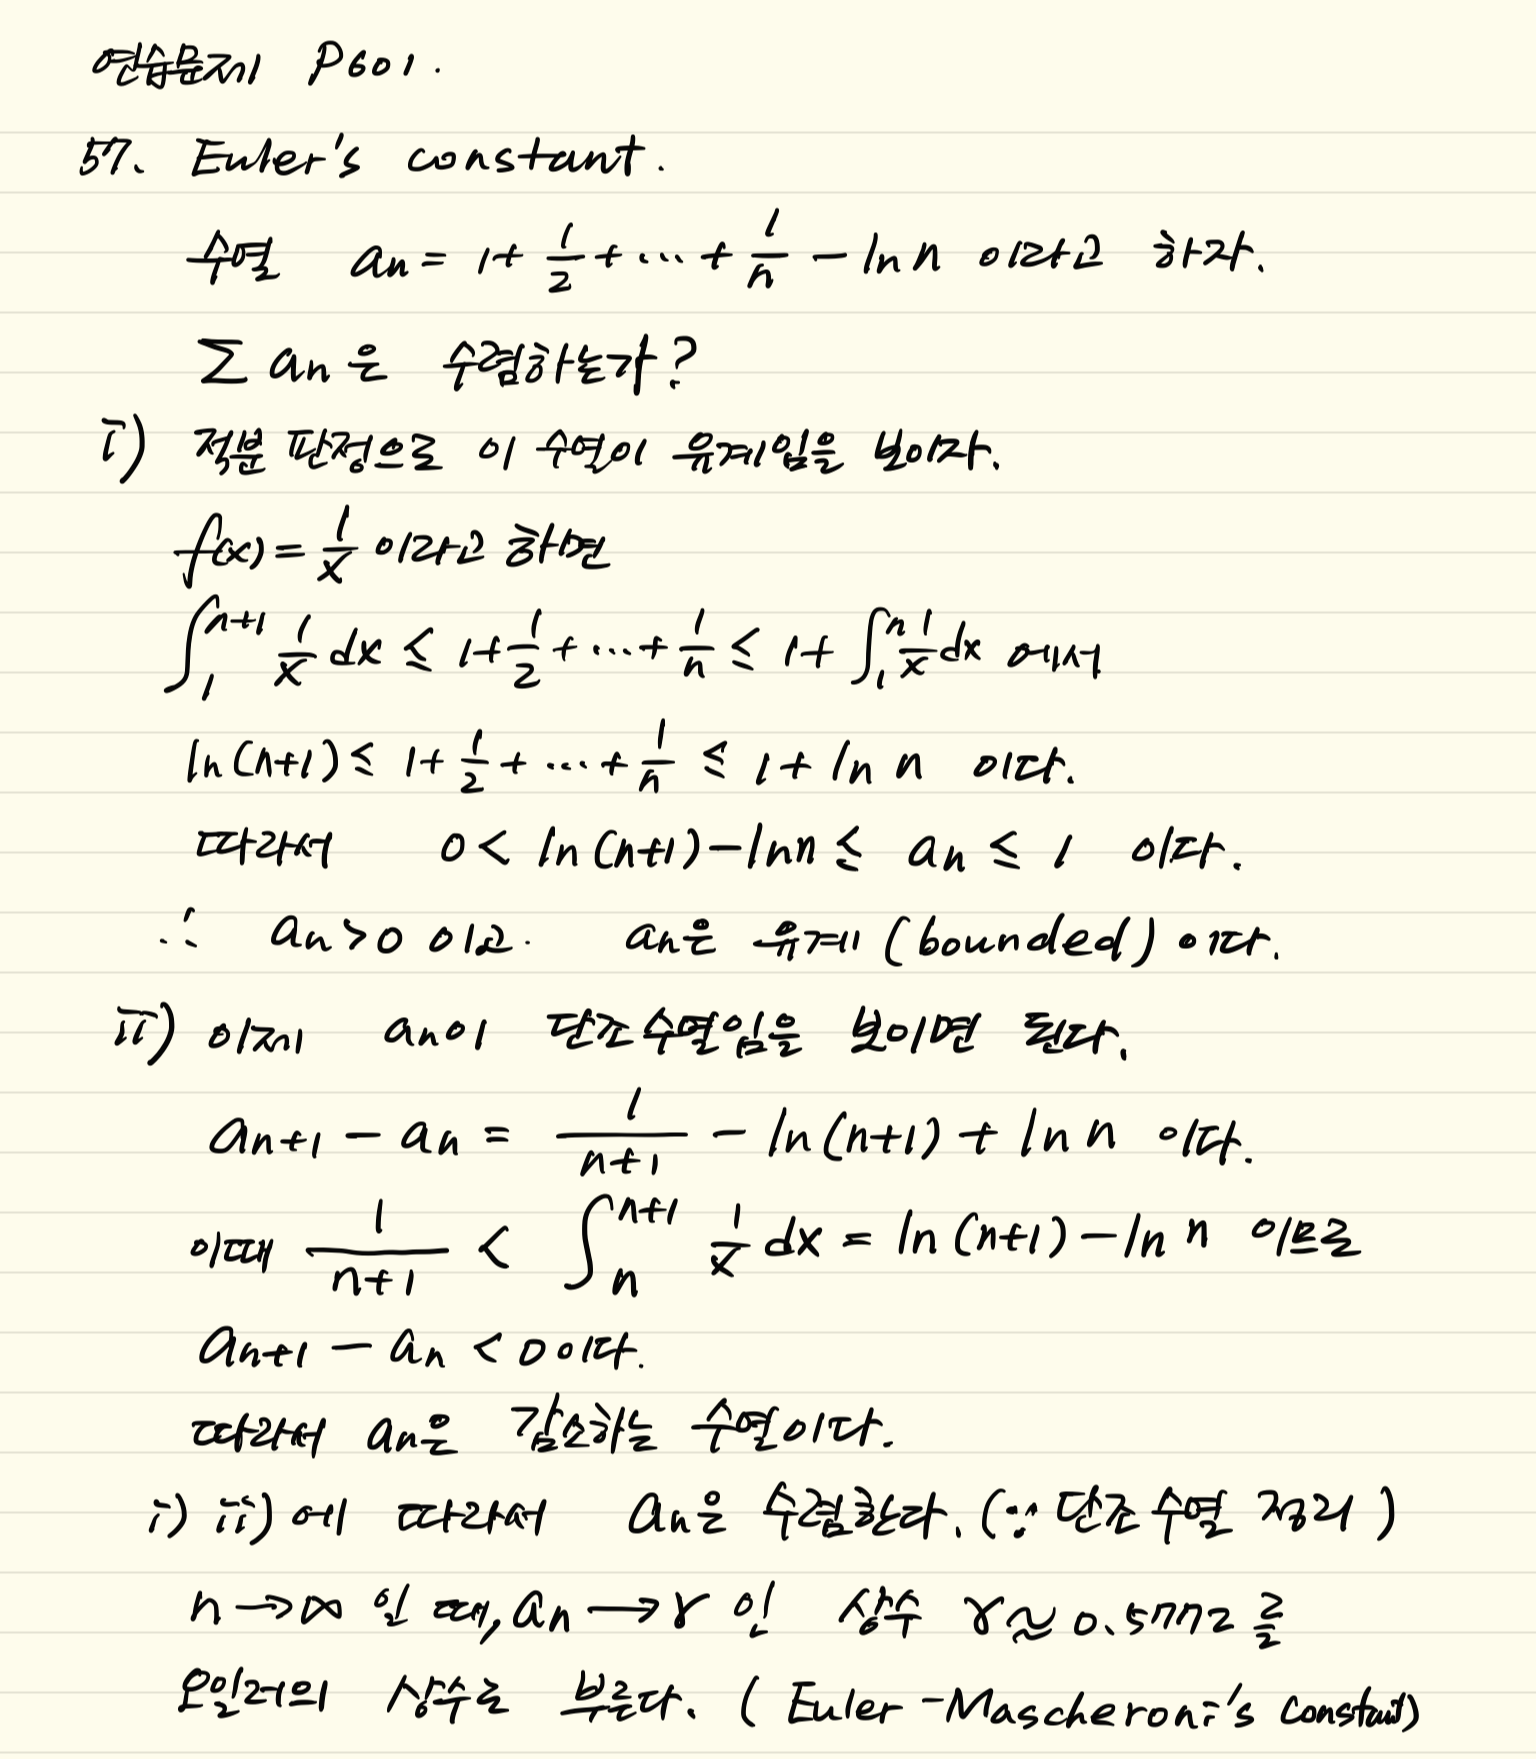 연습문제 P601.
57. Euler's constant.
수열 an = 1+ 1/2 + ... + 1/n - ln n 이라고 하자.
∑ an 은 수렴하는가?
i) 적분 판정으로 이 수열이 유계임을 보이자.
f(x) = 1/x 이라고 하면
∫₁ⁿ⁺¹ 1/x dx ≤ 1+ 1/2 + ... + 1/n ≤ 1+ ∫₁ⁿ 1/x dx 에서
ln(n+1) ≤ 1+ 1/2 + ... + 1/n ≤ 1+ ln n 이다.
따라서 0 < ln(n+1) - ln n ≤ an ≤ 1 이다.
∴ an > 0 이고. an은 유계 (bounded) 이다.
ii) 이제 an이 단조수열임을 보이면 된다.
an+1 - an = 1/(n+1) - ln(n+1) + ln n 이다.
이때 1/(n+1) < ∫ₙⁿ⁺¹ 1/x dx = ln(n+1) - ln n 이므로
an+1 - an < 0 이다.
따라서 an은 감소하는 수열이다.
i) ii) 에 따라서 an은 수렴한다. (∵ 단조 수열 정리)
n → ∞ 일 때, an → γ 인 상수 γ ≈ 0.5772 를
오일러의 상수로 부른다. (Euler-Mascheroni's constant)